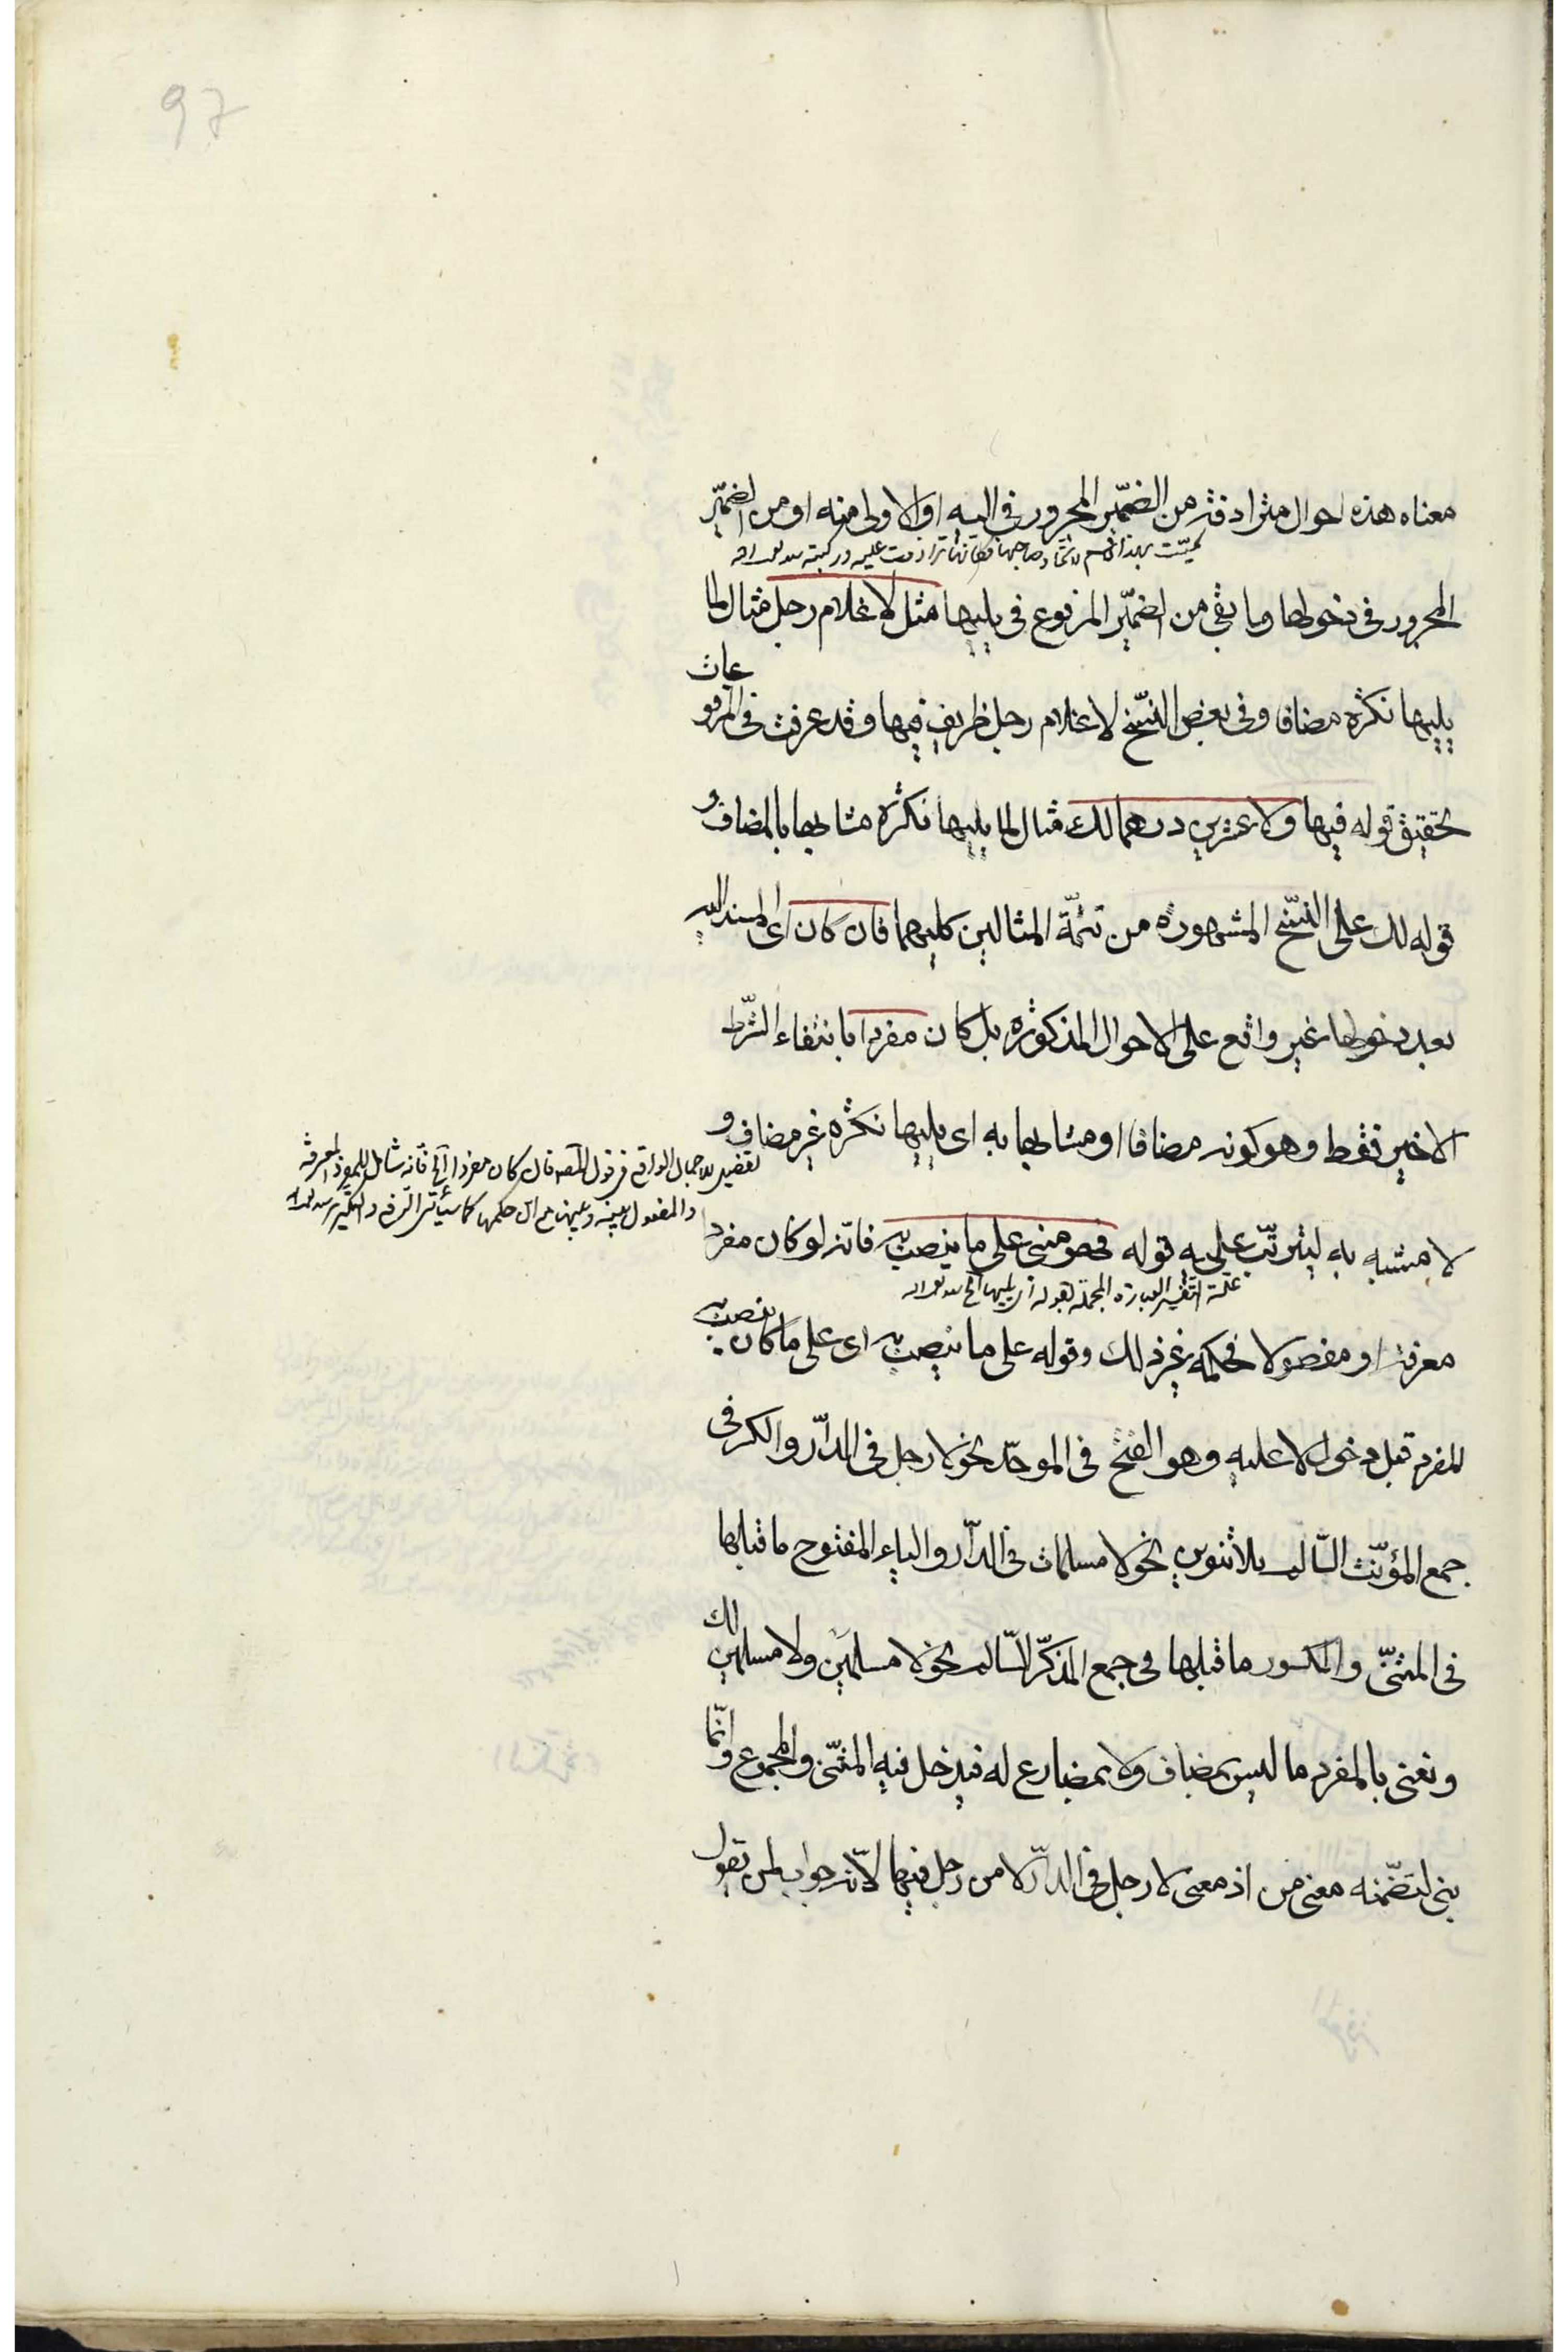 97
معناه هذه احوال مترادفة من الضمير المجرور في اليه او الاولى منه او من الضمير
سميت بهذا الاسم لاتحاد صاحبها فكانها ترادفت عليه وركبته
المجرور في دخولها وما بقي من الضمير المرفوع في يليها مثل لا غلام رجل مثال لما
يليها نكرة مضافا وفي بعض النسخ لا غلام رجل ظريف فيها وقد عرفت في المرفوعات
تحقيق قوله فيها ولا عشرين درهما لك مثال لما يليها نكرة مشابها بالمضاف و
قوله لك على النسخ المشهورة من تتمة المثالين كليهما فان كان اى المسند اليه
بعد دخولها غير واقع على الاحوال المذكورة بل كان مفردا بانتفاء الشرط
الاخير فقط وهو كونه مضافا او مشابها به اى يليها نكرة غير مضاف و
تفصيل للاجمال الواقع في قول المصـ فان كان مفردا الخ فانه شامل للمفرد المعرفة
والمفصول بينه وبينها مع ان حكمها كما سيأتي الرفع والتكرير
لا مشبه به ليترتب عليه قوله فهو مبنى على ما ينصب به فانه لو كان مفردا
علة لتفسير العبارة المجملة بقوله اى يليها الخ
معرفة او مفصولا فحكمه غير ذلك وقوله على ما ينصب به اى على ما كان ينصب به
المفرد قبل دخول لا عليه وهو الفتح في الموحد نحو لا رجل في الدار والكسر في
جمع المؤنث السالم بلا تنوين نحو لا مسلمات في الدار والياء المفتوح ما قبلها
في المثنى والمكسور ما قبلها في جمع المذكر السالم نحو لا مسلمين ولا مسلمين لك
ونعنى بالمفرد ما ليس بمضاف ولا بمضارع له فيدخل فيه المثنى والمجموع وانما
بنى لتضمنه معنى من اذ معنى لا رجل في الدار لا من رجل فيها لانه جواب لمن يقول